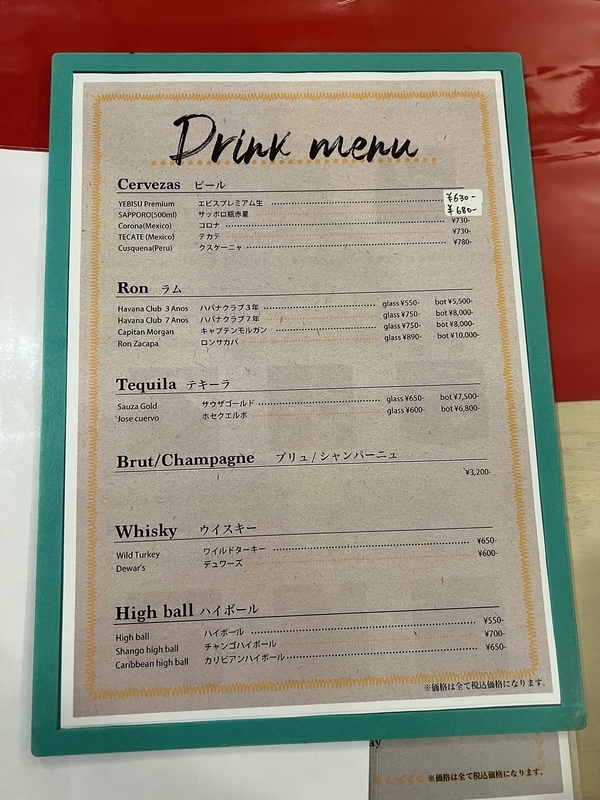 Drink menu
Cervezas ビール
YEBISU Premium エビスプレミアム生 ¥630-
SAPPORO(500ml) サッポロ瓶赤星 ¥680-
Corona(Mexico) コロナ ¥730-
TECATE (Mexico) テカテ ¥730-
Cusquena(Peru) クスケーニャ ¥780-
Ron ラム
Havana Club 3 Anos ハバナクラブ3年 glass ¥550- bot ¥5,500-
Havana Club 7 Anos ハバナクラブ7年 glass ¥750- bot ¥8,000-
Capitan Morgan キャプテンモルガン glass ¥750- bot ¥8,000-
Ron Zacapa ロンサカパ glass ¥890- bot ¥10,000-
Tequila テキーラ
Sauza Gold サウザゴールド glass ¥650- bot ¥7,500-
Jose cuervo ホセクエルボ glass ¥600- bot ¥6,800-
Brut/Champagne ブリュ/シャンパーニュ
¥3,200-
Whisky ウイスキー
Wild Turkey ワイルドターキー ¥650-
Dewar's デュワーズ ¥600-
High ball ハイボール
High ball ハイボール ¥550-
Shango high ball チャンゴハイボール ¥700-
Caribbean high ball カリビアンハイボール ¥650-
※価格は全て税込価格になります。
ay
※価格は全て税込価格になります。